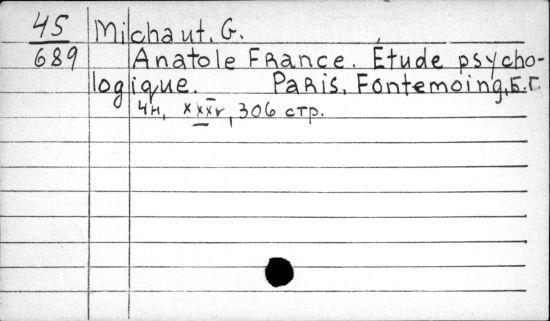 45 Michaut, G.
689 Anatole France. Étude psycho-
logique. Paris, Fontemoing, Б.Г.
4н, xxxv, 306 стр.